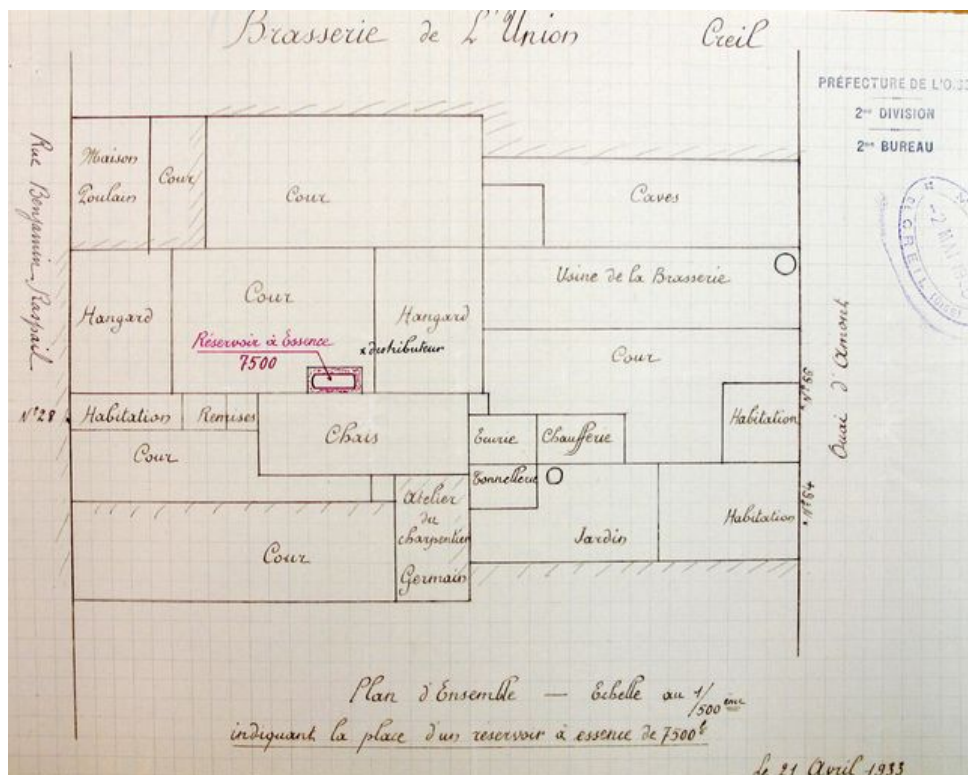 Brasserie de L'Union Creil
PRÉFECTURE DE L'OISE
2me DIVISION
2me BUREAU
Rue Benjamin-Raspail
Maison
Poulain
Cour
Cour
Caves
Usine de la Brasserie
Hangard
Cour
Hangard
Réservoir à Essence
7500
x distributeur
Cour
Quai d'Amont
N° 28
Habitation
Remises
Chais
Ecurie
Chaufferie
Habitation
N° 66
Cour
Tonnellerie
Atelier
du
charpentier
Germain
Cour
Jardin
Habitation
N° 64
2 MAI
CREIL
Plan d'Ensemble — Echelle au 1/500 ème
indiquant la place d'un réservoir à essence de 7500 l
le 21 Avril 1933